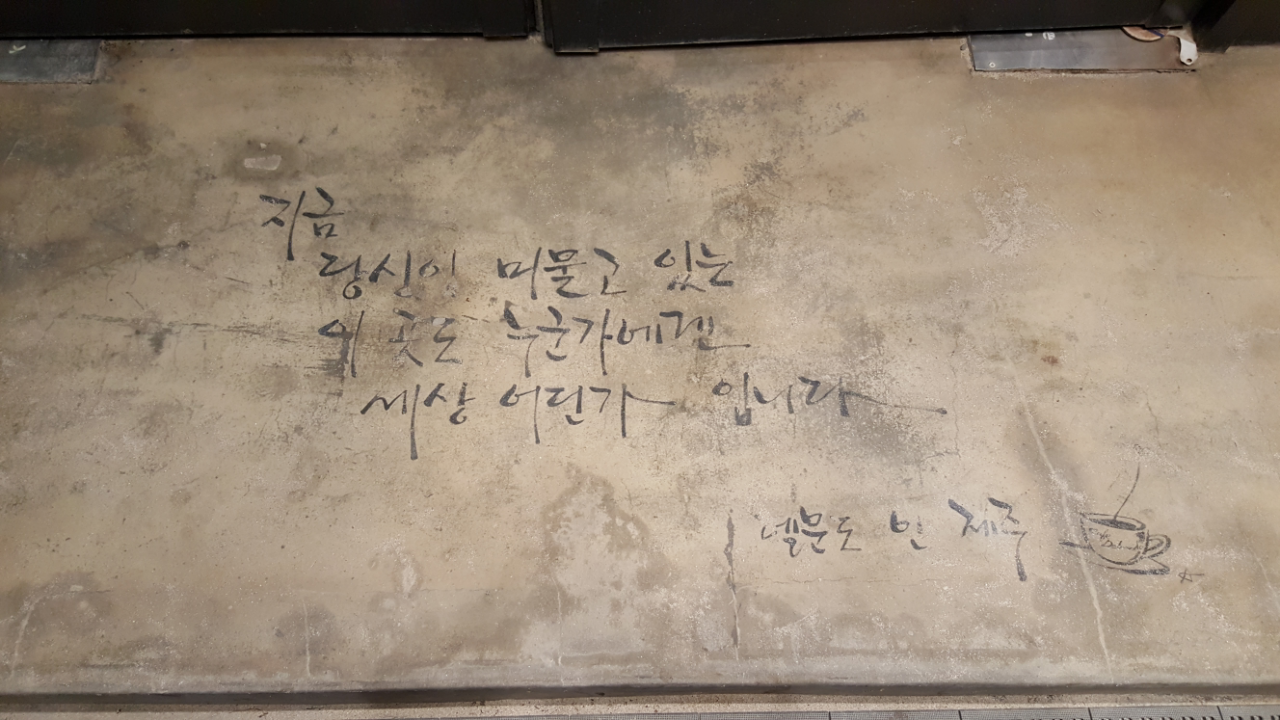 지금
당신이 머물고 있는
이 곳도 누군가에겐
세상 어딘가 입니다
넬문도 인 제주